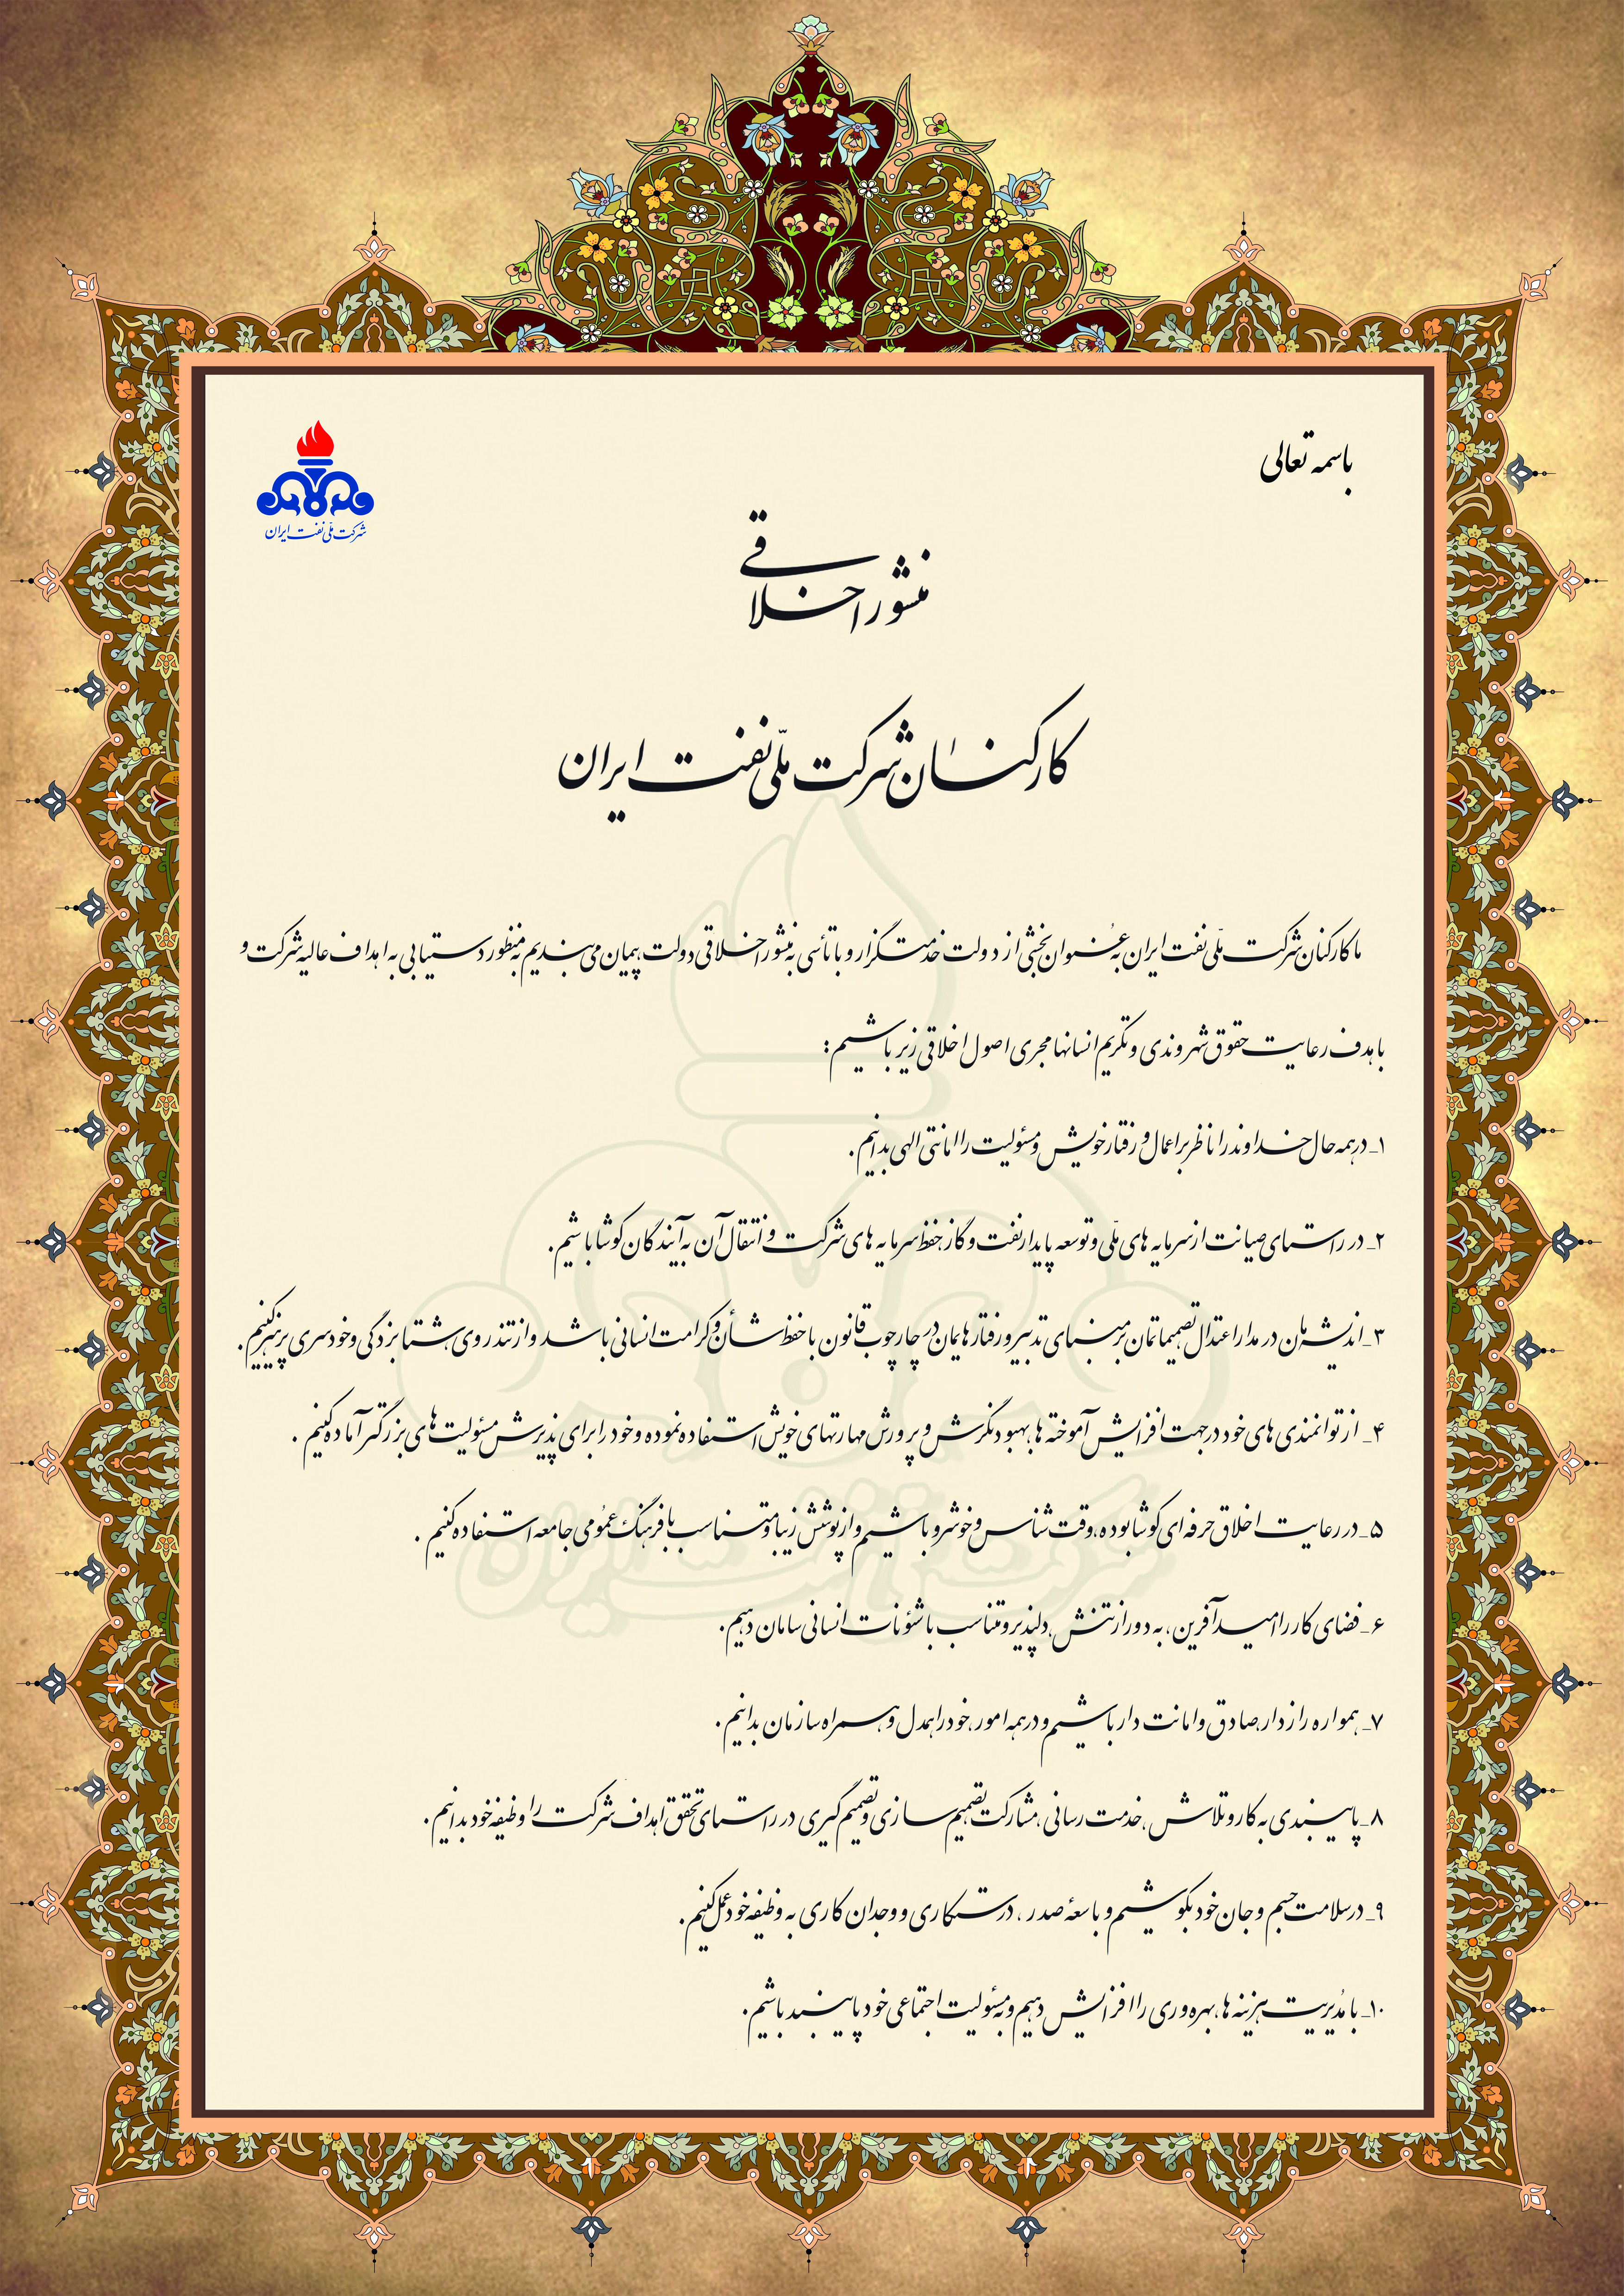 باسمه تعالی
شرکت ملّی نفت ایران
منشور اخلاقی
کارکنان شرکت ملّی نفت ایران
ما کارکنان شرکت ملّی نفت ایران به عنوان بخشی از دولت خدمتگزار و با تأسی به منشور اخلاقی دولت پیمان می‌بندیم به منظور دستیابی به اهداف عالیه شرکت و
با هدف رعایت حقوق شهروندی و تکریم انسانها مجری اصول اخلاقی زیر باشیم:
۱_ در همه حال خداوند را ناظر بر اعمال و رفتار خویش و مسئولیت را امانتی الهی بدانیم.
۲_ در راستای صیانت از سرمایه های ملّی و توسعه پایدار نفت و گاز، حفظ سرمایه های شرکت و انتقال آن به آیندگان کوشا باشیم.
۳_ اندیشه مان در مدار اعتدال تصمیماتمان بر مبنای تدبیر و رفتارهایمان در چارچوب قانون با حفظ شأن و کرامت انسانی باشد و از تندروی، شتابزدگی و خودسری پرهیز کنیم.
۴_ از توانمندی های خود در جهت افزایش آموخته ها، بهبود نگرش و پرورش مهارتهای خویش استفاده نموده و خود را برای پذیرش مسئولیت های بزرگتر آماده کنیم.
۵_ در رعایت اخلاق حرفه ای کوشا بوده، وقت شناس و خوشرو باشیم و از پوشش زیبا و متناسب با فرهنگ عمومی جامعه استفاده کنیم.
۶_ فضای کار را امیدآفرین، به دور از تنش، دلپذیر و متناسب با شئونات انسانی سامان دهیم.
۷_ همواره رازدار، صادق و امانت دار باشیم و در همه امور، خود را همدل و همراه سازمان بدانیم.
۸_ پایبندی به کار و تلاش، خدمت رسانی، مشارکت، تصمیم سازی و تصمیم گیری در راستای تحقق اهداف شرکت را وظیفه خود بدانیم.
۹_ در سلامت جسم و جان خود بکوشیم و با سعهٔ صدر، درستکاری و وجدان کاری به وظیفه خود عمل کنیم.
۱۰_ با مدیریت هزینه ها، بهره وری را افزایش دهیم و به مسئولیت اجتماعی خود پایبند باشیم.